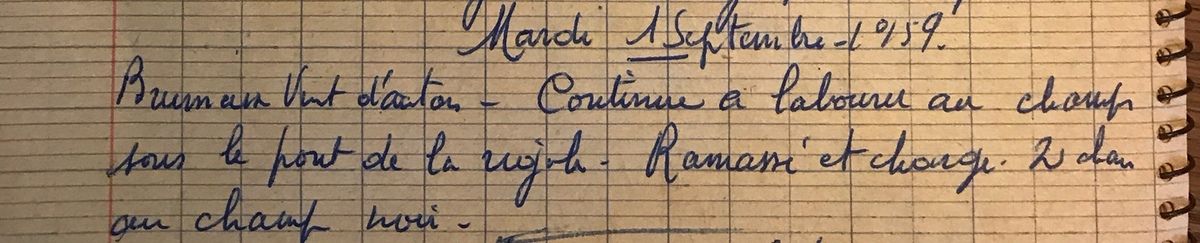 Mardi 1 Septembre - 1959.
Brumeux Vent d'autan - Continue a labourer au champ
sous le pont de la - Ramassé et charge 2 chars
au champ noir -